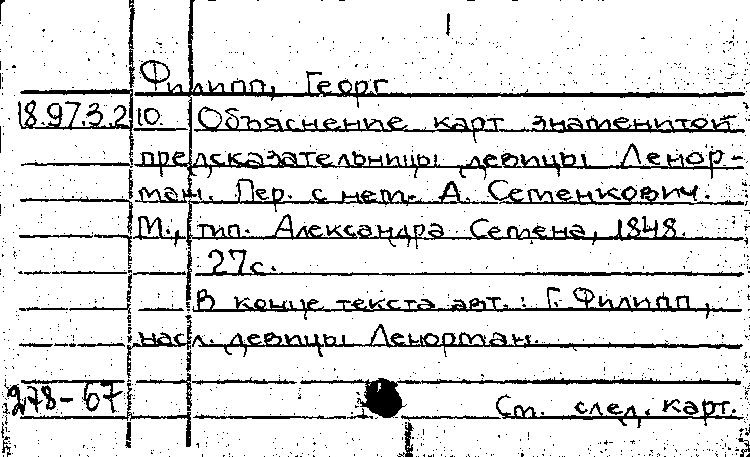 Филипп, Георг
18.97.3.210. Объяснение карт знаменитой
предсказательницы девицы Ленор-
ман. Пер. с нем. А. Семенкович.
М., тип. Александра Семена, 1848.
27с.
В конце текста авт.: Г. Филипп,
насл. девицы Ленорман.
278-67
См. след. карт.